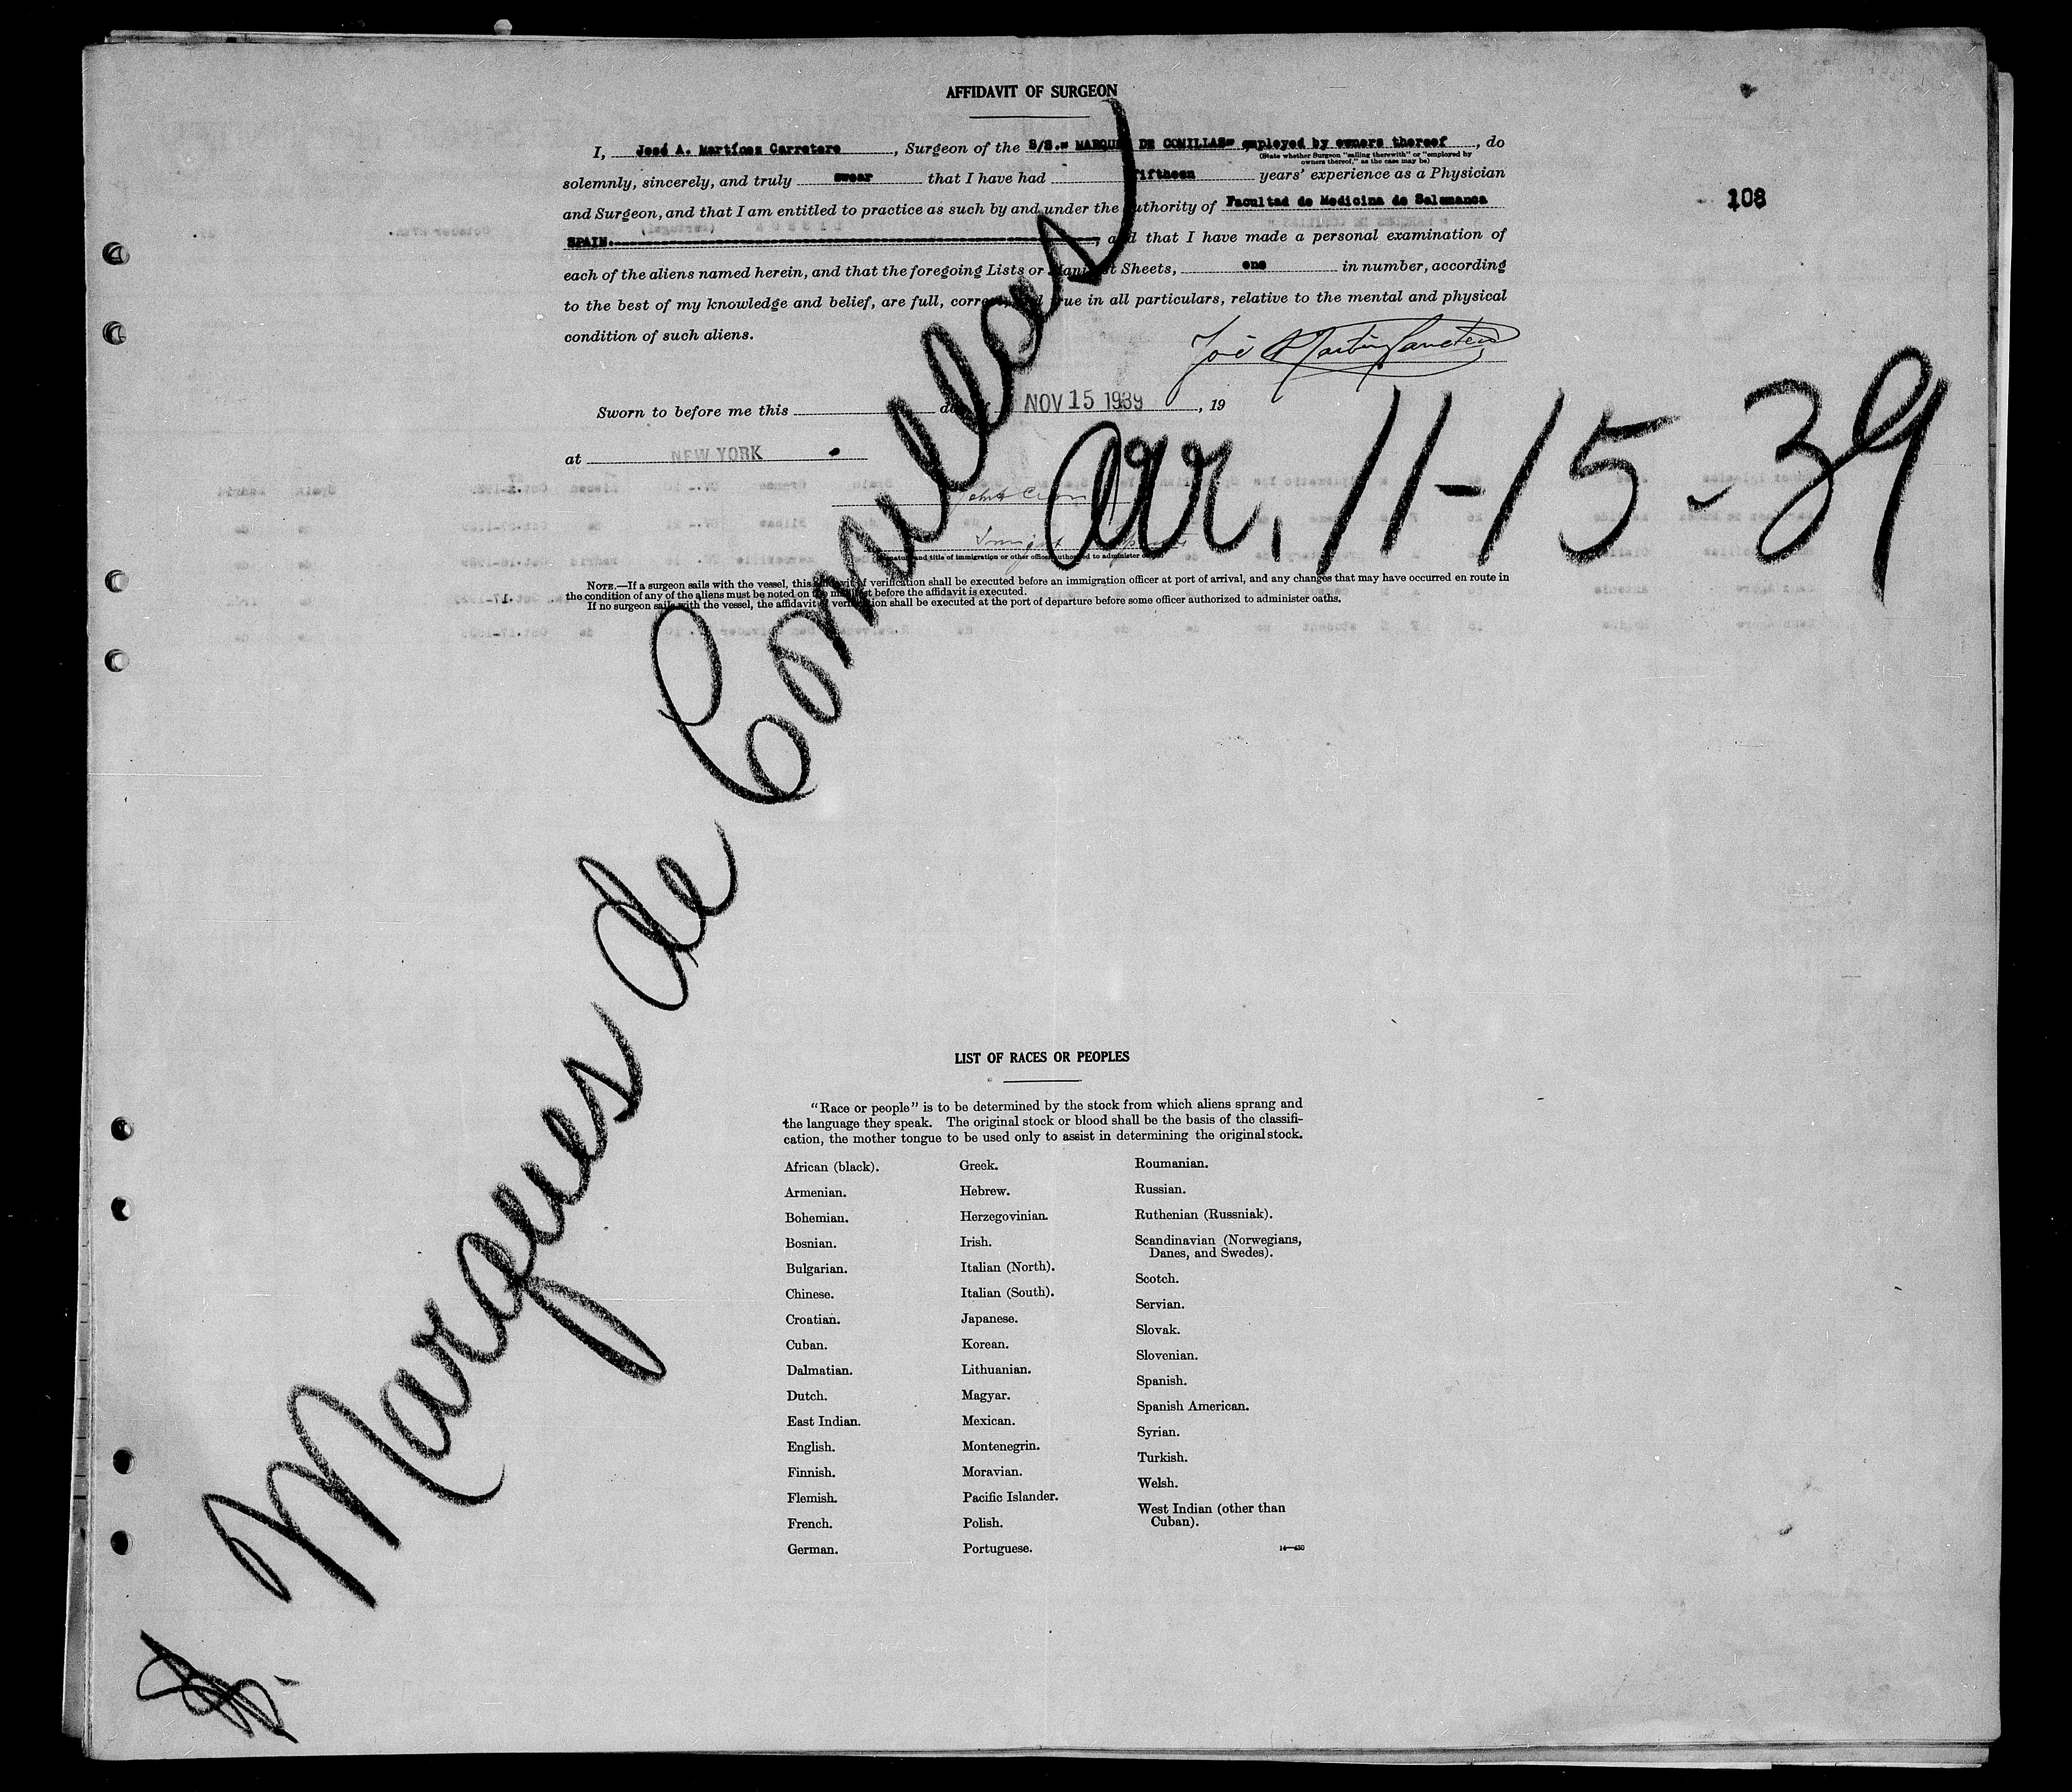 AFFIDAVIT OF SURGEON
I, José A. Martínez Carretero, Surgeon of the S/S." MARQUES DE COMILLAS" employed by owners thereof, do
(State whether Surgeon "sailing therewith" or "employed by
owners thereof," as the case may be)
solemnly, sincerely, and truly swear that I have had fiftheen years' experience as a Physician
108
and Surgeon, and that I am entitled to practice as such by and under the authority of Facultad de Medicina de Salamanca
SPAIN. , and that I have made a personal examination of
each of the aliens named herein, and that the foregoing Lists or Manifest Sheets, one in number, according
to the best of my knowledge and belief, are full, correct, and true in all particulars, relative to the mental and physical
condition of such aliens.
José A Martínez Carretero
Sworn to before me this day of NOV 15 1939, 19
at NEW YORK
arr. 11-15-39
(Signature and title of immigration or other officer authorized to administer oaths)
NOTE.—If a surgeon sails with the vessel, this affidavit of verification shall be executed before an immigration officer at port of arrival, and any changes that may have occurred en route in
the condition of any of the aliens must be noted on the manifest before the affidavit is executed.
If no surgeon sails with the vessel, the affidavit of verification shall be executed at the port of departure before some officer authorized to administer oaths.
Marques de Comillas)
LIST OF RACES OR PEOPLES
"Race or people" is to be determined by the stock from which aliens sprang and
the language they speak. The original stock or blood shall be the basis of the classifi-
cation, the mother tongue to be used only to assist in determining the original stock.
African (black).
Armenian.
Bohemian.
Bosnian.
Bulgarian.
Chinese.
Croatian.
Cuban.
Dalmatian.
Dutch.
East Indian.
English.
Finnish.
Flemish.
French.
German.
Greek.
Hebrew.
Herzegovinian.
Irish.
Italian (North).
Italian (South).
Japanese.
Korean.
Lithuanian.
Magyar.
Mexican.
Montenegrin.
Moravian.
Pacific Islander.
Polish.
Portuguese.
Roumanian.
Russian.
Ruthenian (Russniak).
Scandinavian (Norwegians,
Danes, and Swedes).
Scotch.
Servian.
Slovak.
Slovenian.
Spanish.
Spanish American.
Syrian.
Turkish.
Welsh.
West Indian (other than
Cuban).
14—430